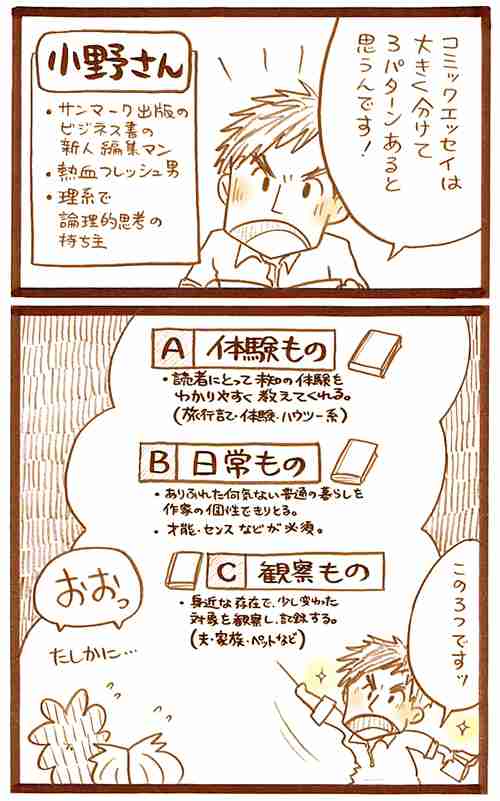 コミックエッセイは
大きく分けて
3パターンあると
思うんです!
小野さん
・サンマーク出版の
ビジネス書の
新人編集マン
・熱血フレッシュ男
・理系で
論理的思考の
持ち主
A 体験もの
・読者にとって未知の体験を
わかりやすく教えてくれる。
(旅行記・体験・ハウツー系)
B 日常もの
・ありふれた何気ない普通の暮らしを
作家の個性できりとる。
・才能・センスなどが必須。
C 観察もの
・身近な存在で、少し変わった
対象を観察し、記録する。
(夫・家族・ペットなど)
この3つですッ
おおっ
たしかに…